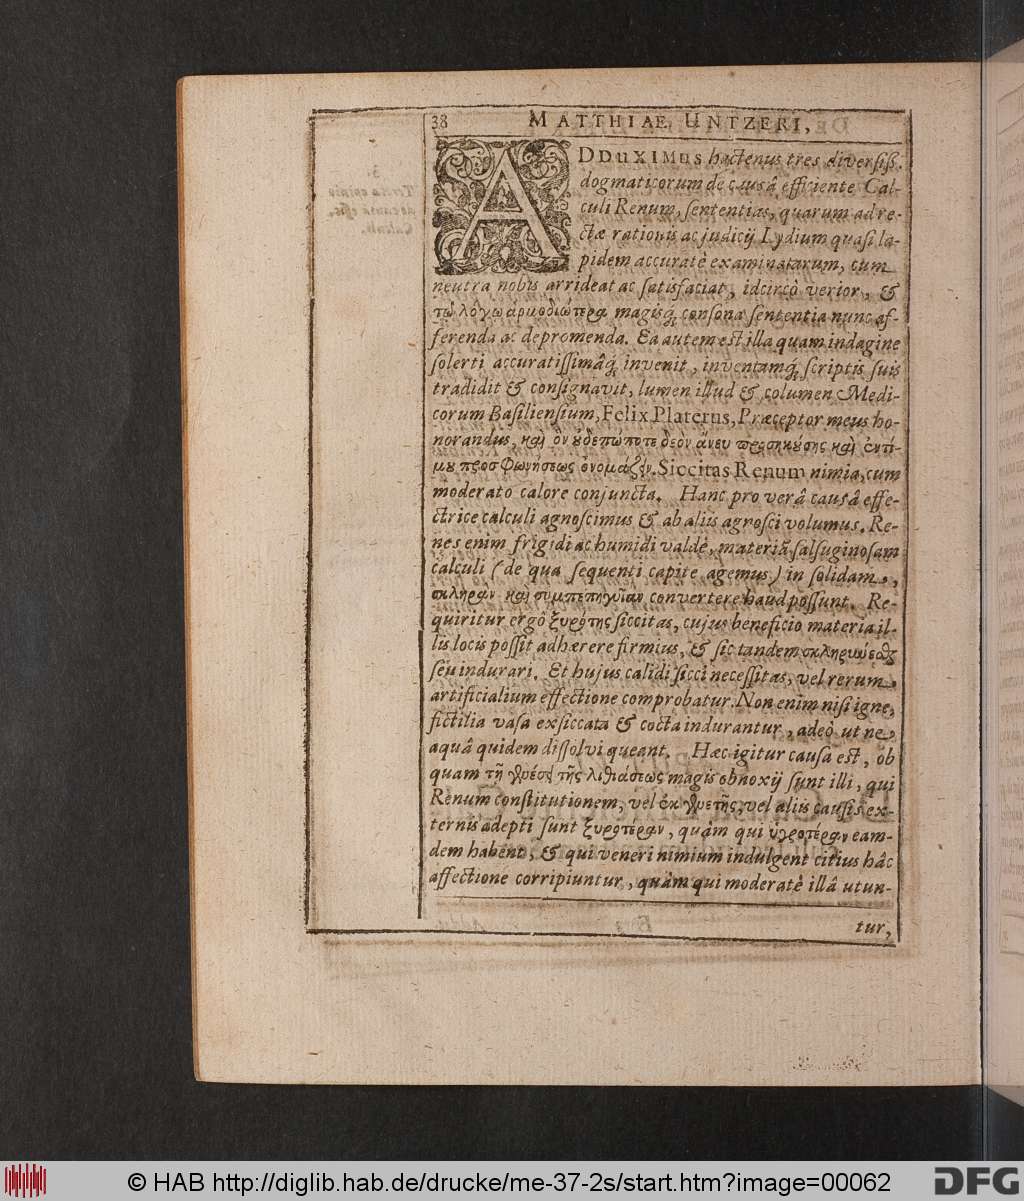 38 MATTHIAE UNTZERI,
ADDUXIMUS hactenus tres diversiss.
dogmaticorum de causâ efficiente Cal-
culi Renum, sententias, quarum ad re-
ctæ rationis ac judicij Lydium quasi la-
pidem accuratè examinatarum, cum
neutra nobis arrideat ac satisfaciat, idcircò verior, &
τῷ λόγῳ ἁρμοδιώτερα magisq́; consona sententia nunc af-
ferenda ac depromenda. Ea autem est illa quam indagine
solerti accuratissimâq́; invenit, inventamq́; scriptis suis
tradidit & consignavit, lumen illud & columen Medi-
corum Basiliensium, Felix Platerus, Præceptor meus ho-
norandus, καὶ ὃν οὐδεπώποτε δεὸν ἄνευ προσκυήσης καὶ ἐντί-
μου προσφωνήσεως ὀνομάζειν. Siccitas Renum nimia, cum
moderato calore conjuncta. Hanc pro verâ causâ effe-
ctrice calculi agnoscimus & ab aliis agnosci volumus. Re-
nes enim frigidi ac humidi valdè, materiã salsuginosam
calculi (de qua sequenti capite agemus) in solidam,
σκληρὰν καὶ συμπεπηγυῖαν convertere haud possunt. Re-
quiritur ergò ξηρότης siccitas, cujus beneficio materia il-
lis locis possit adhærere firmius, & sic tandem σκληρύνεσθαι
seu indurari. Et hujus calidi sicci necessitas, vel rerum
artificialium effectione comprobatur. Non enim nisi igne,
fictilia vasa exsiccata & cocta indurantur, adeò ut ne
aquâ quidem dissolvi queant. Hæc igitur causa est, ob
quam τῇ γενέσει τῆς λιθιάσεως magis obnoxij sunt illi, qui
Renum constitutionem, vel ἐκ γενετῆς, vel aliis causis ex-
ternis adepti sunt ξηροτέραν, quàm qui ὑγροτέραν eam-
dem habent, & qui veneri nimium indulgent citius hâc
affectione corripiuntur, quàm qui moderatè illâ utun-
tur,
© HAB http://diglib.hab.de/drucke/me-37-2s/start.htm?image=00062
DFG